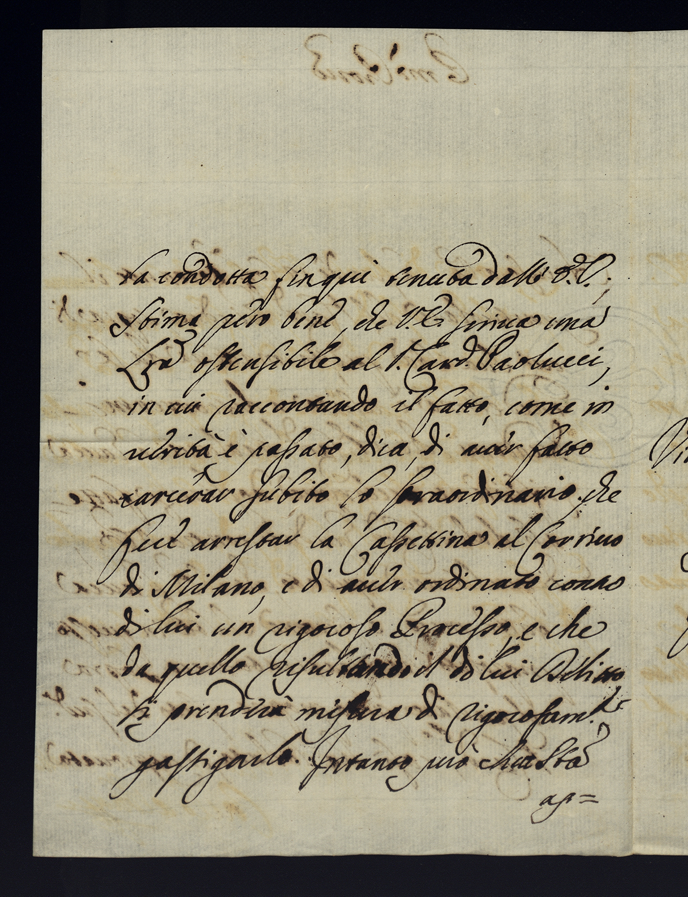 la condotta sin qui tenuta dall' V.E.;
Stima però bene, che V.E. scriva una
Lra ostensibile al S. Card. Paolucci,
in cui raccontando il fatto, come in
verità è passato, dica, di aver fatto
carcerar subito lo straordinario, che
fece arrestar la Cassettina al Corriero
di Milano, e di aver ordinato contro
di lui un rigoroso Processo, e che
da quello risultando il di lui Delitto
si prenderà misura di rigorosam.te
gastigarlo. Intanto però